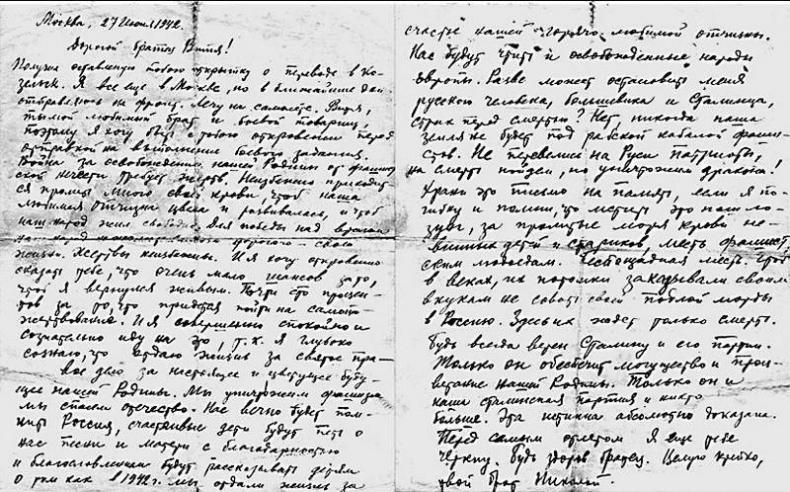 Москва, 27 июля 1942.
Дорогой братец Витя!
Получил оставленную тобою открытку о переводе в Ко-
зельск. Я все еще в Москве, но в ближайшие дни
отправляюсь на фронт. Лечу на самолете. Витя,
ты мой любимый брат и боевой товарищ,
поэтому я хочу быть с тобою откровенен перед
отправкой на выполнение боевого задания.
Война за освобождение нашей Родины от фашист
ской нечисти требует жертв. Неизбежно приходит
ся пролить много своей крови, чтоб наша
любимая отчизна цвела и развивалась, и чтоб
наш народ жил свободно. Для победы над врагом
наш народ не жалеет самого дорогого – своей
жизни. Жертвы неизбежны. И я хочу откровенно
сказать тебе, что очень мало шансов за то,
чтоб я вернулся живым. Почти сто процен-
тов за то, что придется пойти на самопо-
жертвование. И я совершенно спокойно и
сознательно иду на это, т.к. я глубоко
сознаю, что отдаю жизнь за святое пра-
вое дело за настоящее и цветущее буду-
щее нашей Родины. Мы уничтожим фашизм
мы спасем отечество. Нас вечно будет пом-
нить Россия, счастливые дети будут петь о
нас песни и матери с благодарностью
и благословением будут рассказывать детям
о том как в 1942 г. мы отдали жизнь за
счастье нашей горячо любимой отчизны.
Нас будут чтить и освобожденные народы
Европы. Разве может остановить меня
русского человека, большевика и Сталинца,
страх перед смертью? Нет, никогда наша
земля не будет под рабской кабалой фаши-
стов. Не перевелись на Руси патриоты,
на смерть пойдем, но уничтожим дракона!
Храни это письмо на память, если я по-
гибну и помни, что мстить это наш ло-
зунг, за пролитые моря крови не-
винных детей и стариков, месть фашист
ским людоедам. Беспощадная месть, чтоб
в веках, их потомки заказывали своим
внукам не совать своей подлой морды
в Россию. Здесь их ждет только смерть.
Будь всегда верен Сталину и его партии.
Только он обеспечит могущество и проц-
ветание нашей Родины. Только он и
наша сталинская партия и никто
больше. Эта истина абсолютно доказана.
Перед самым отлетом я еще тебе
черкну. Будь здоров братец. Целую крепко,
твой брат Николай